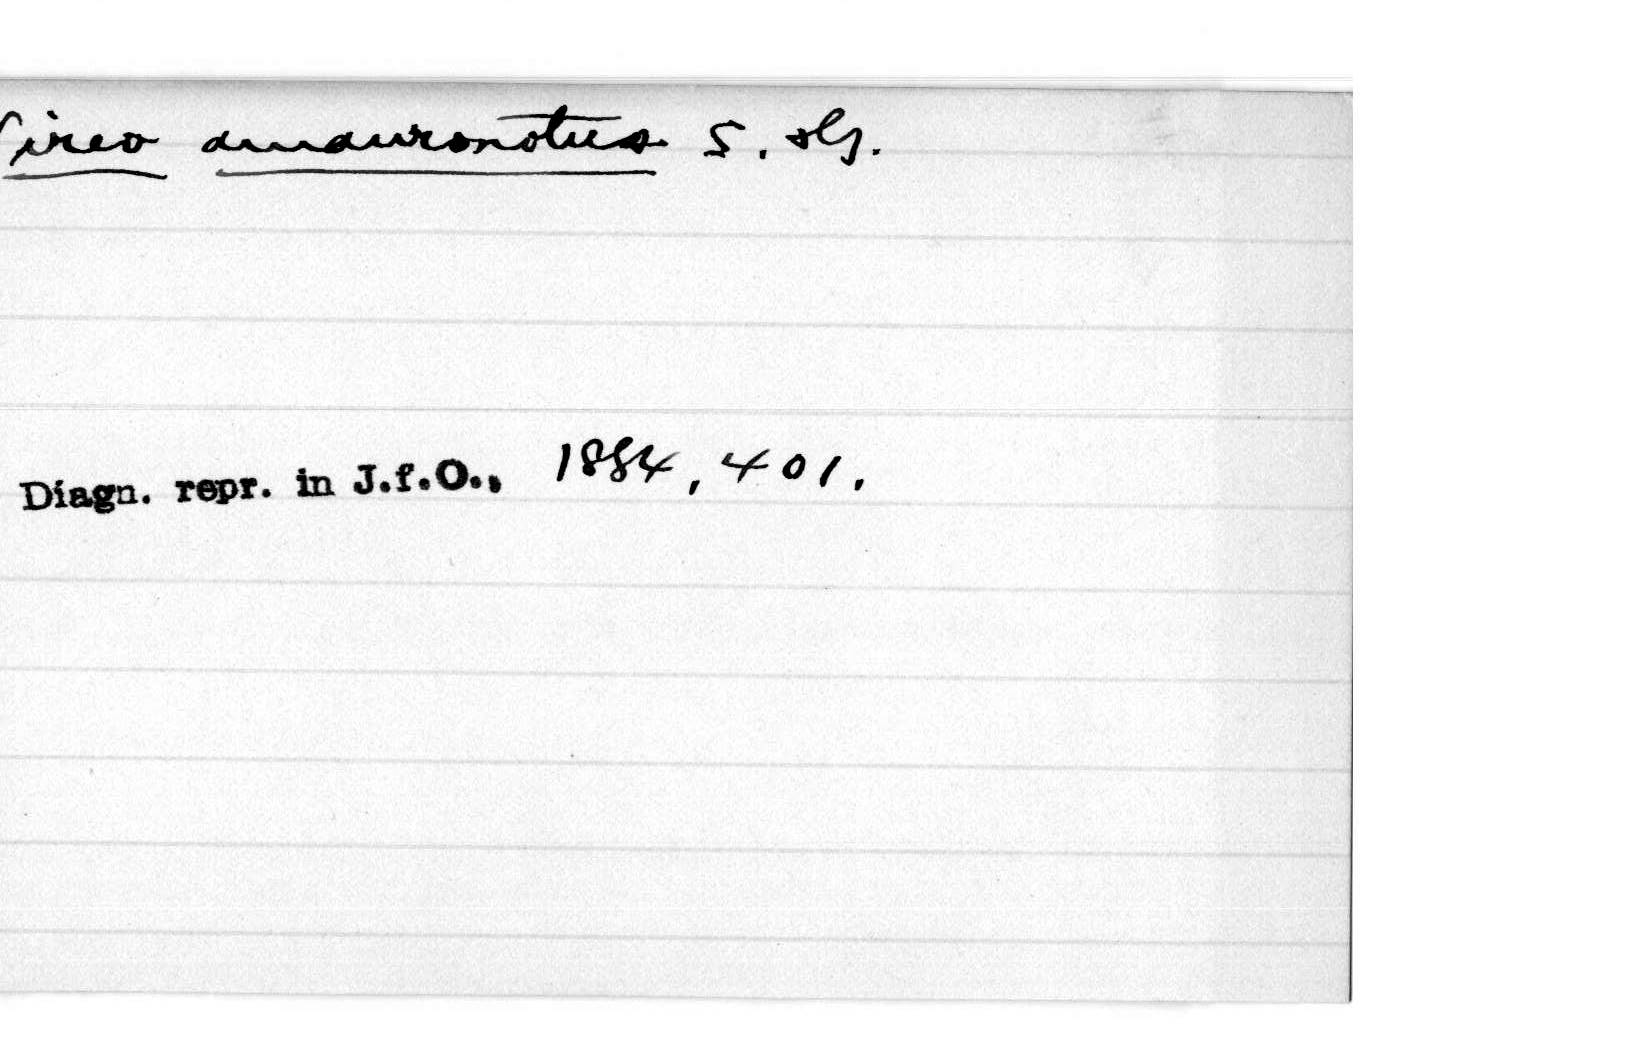 Vireo amauronotus S. & G.
Diagn. repr. in J.f.O., 1884, 401.